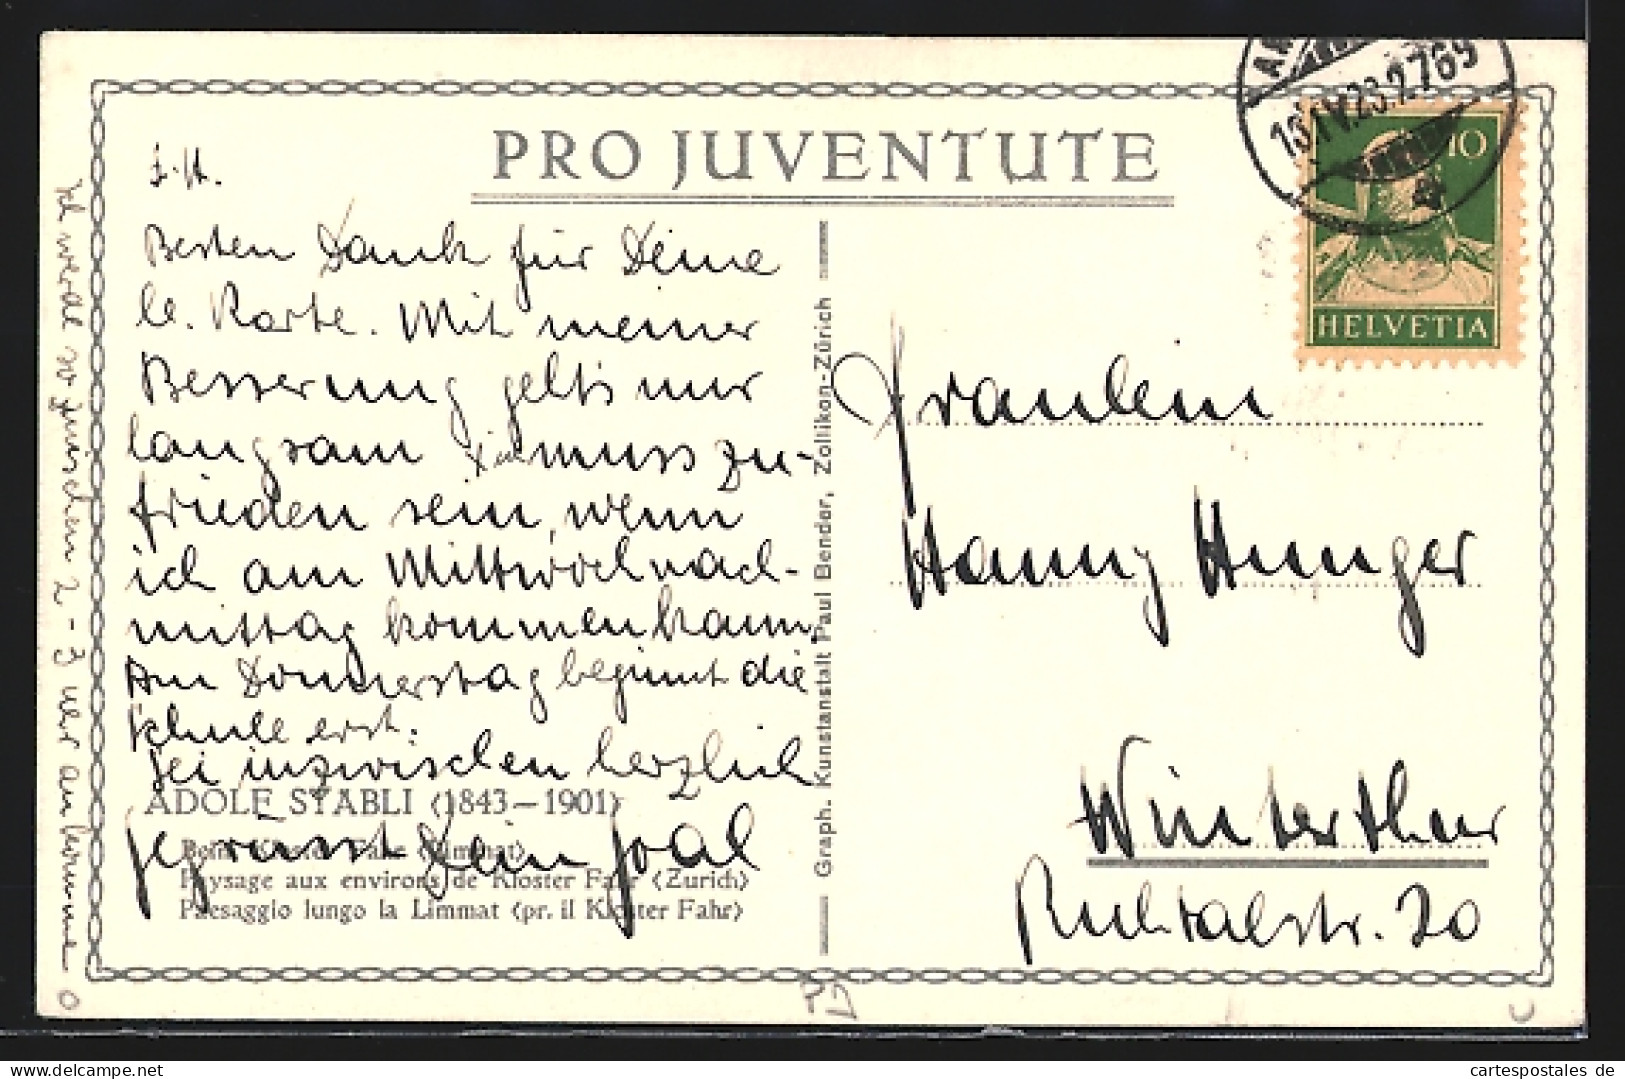 PRO JUVENTUTE
Besten Dank für Deine
lb. Karte. Mit meiner
Besserung gelt's nur
langsam muss zu-
frieden sein, wenn
ich am Mittwochnach-
mittag kommen kann.
Am Donnerstag beginnt die
Schule erst.
Sei inzwischen herzlich
gegrüsst Dein
ADOLF STÄBLI (1843–1901)
Beim Kloster Fahr (Limmat)
Paysage aux environs de Kloster Fahr (Zurich)
Paesaggio lungo la Limmat (pr. il Kloster Fahr)
Ich werde so zwischen 2 - 3 uhr ankommen
Graph. Kunstanstalt Paul Bender, Zollikon-Zürich
10
HELVETIA
Fräulein
Hanny Hunger
Winterthur
Ruhtalstr. 20
www.cartespostales.eu
cartespostales de